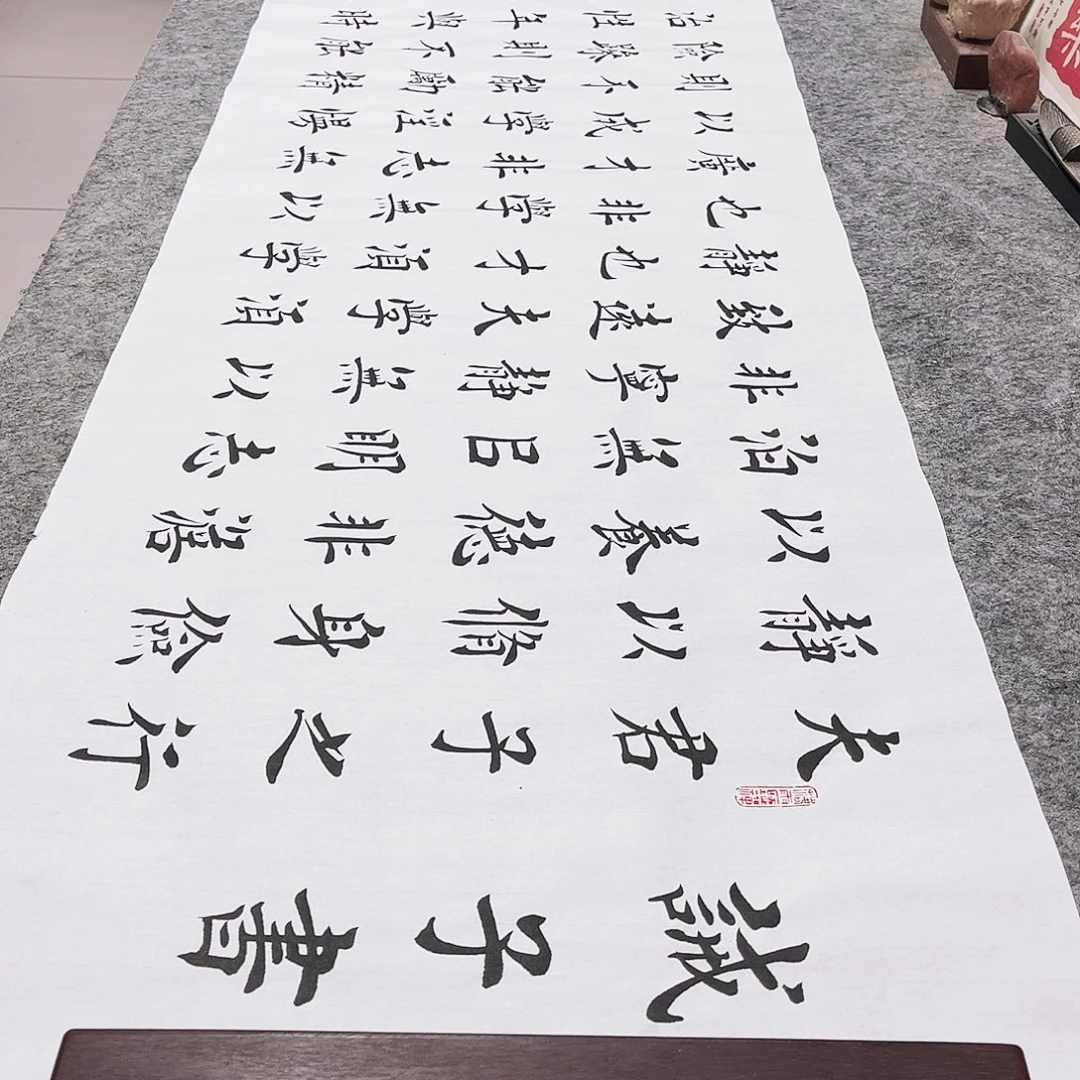 誡子書
夫君子之行
靜以修身儉
以養德非澹
泊無㠯明志
非寧靜無以
致遠夫學須
靜也才須學
也非學無以
廣才非志無
以成學淫慢
則不能勵精
險躁則不能
治性年與時